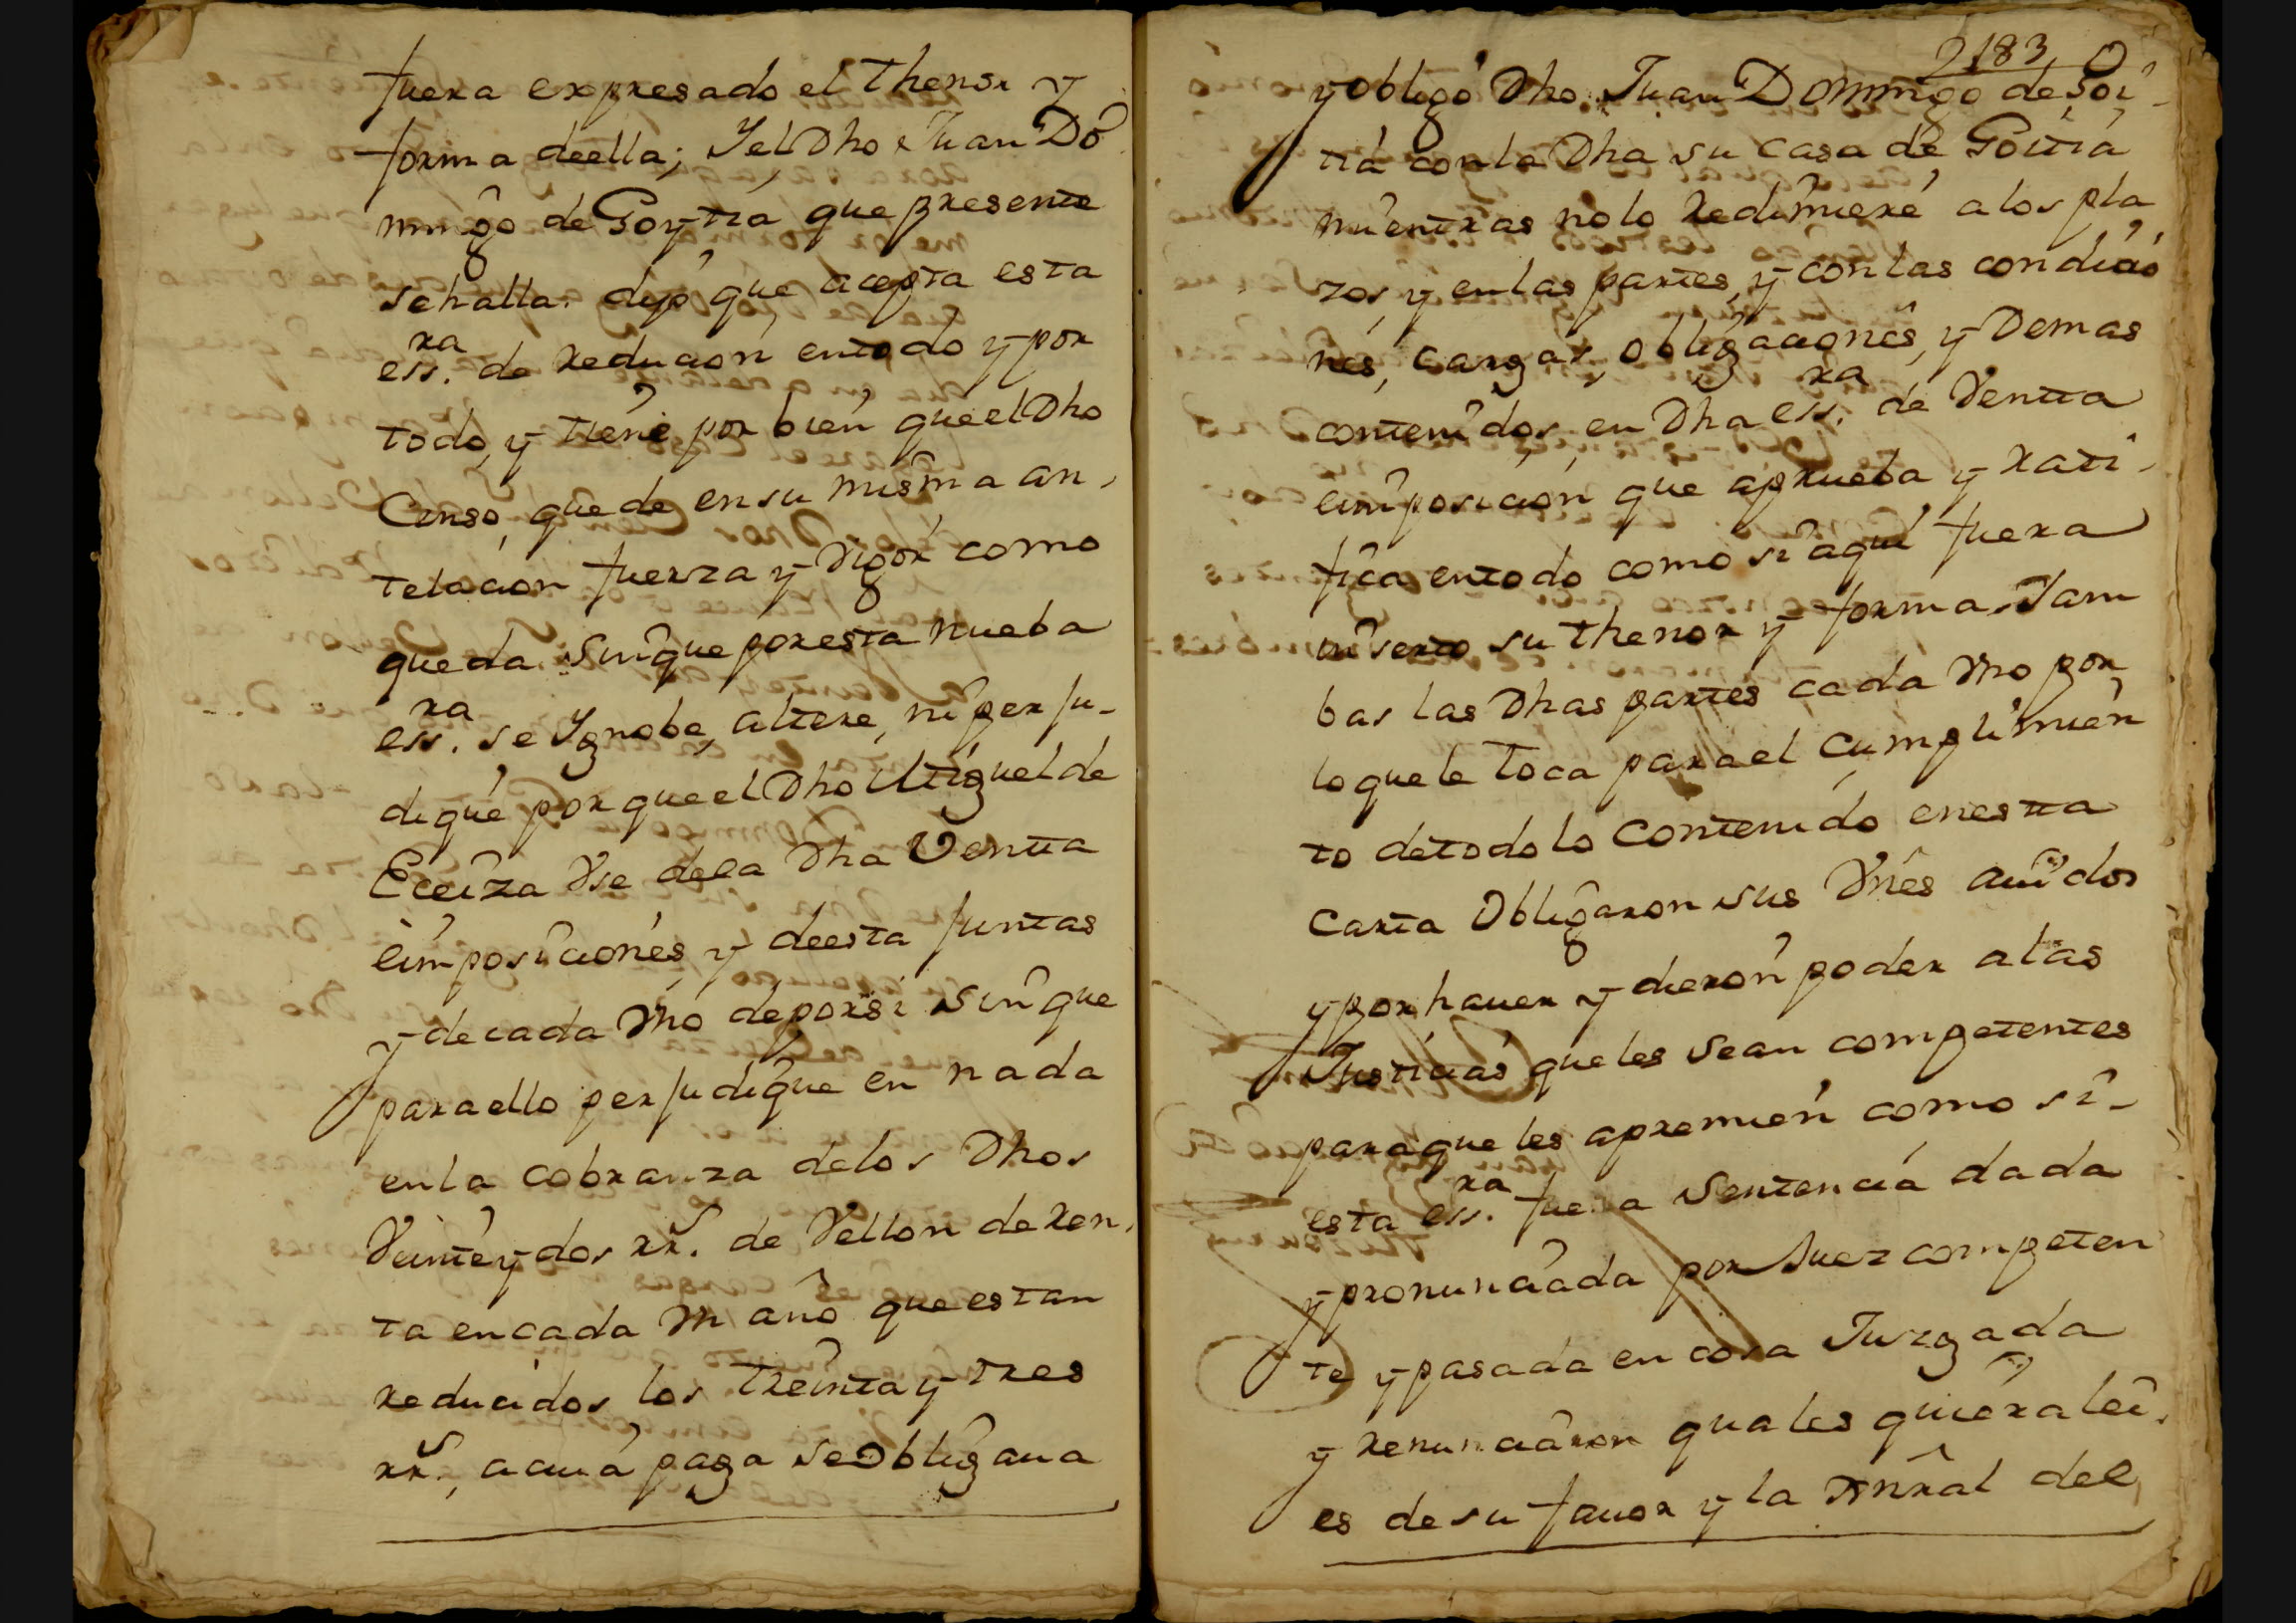 fuera expresado el thenor y
forma de ella; Y el Dho Juan Do
mingo de Goytia que presente
se halla. dijo que acepta esta
essra. de Reducion en todo y por
todo, y tiene por bien que el Dho
Censo, quede en su misma an,
telacion fuerza y Vigor como
queda sin que por esta nueba
essra. se Ygnobe, altere, ni perju-
dique por que el Dho Miguel de
Eceiza Vse de la Dha Venta
eimposiciones y de esta juntas
y de cada Vno de por si sin que
para ello perjudique en nada
en la cobranza de los Dhos
Veinte y dos rrs. de Vellon de Ren,
ta en cada Vn año que estan
reducidos los treinta y tres
rrs., a cuia paga se Obligaua
2183
y obligó Dho Juan Domingo de Goi-
tia con la Dha su casa de Goitia
mientras no lo Redimiere a los pla
zos, y en las partes, y con las condicio
nes, cargas, obligaciones, y Demas
contenidos, en Dha essra. de Venta
eimposicion que aprueba y rati-
fica en todo como si aqui fuera
inserto su thenor y forma. Y am
bas las Dhas partes cada Vno por
lo que le toca para el Cumplimien
to de todo lo Contenido en esta
Carta Obligaron sus Vnes auidos
y por hauer y dieron poder a las
Justicias que les sean competentes
para que les apremien como si-
esta essra. fuera Sentencia dada
y pronunciada por Juez competen
te y pasada en cosa Juzgada
y renunciaron quales quiera lei,
es de su fauor y la Gnral del